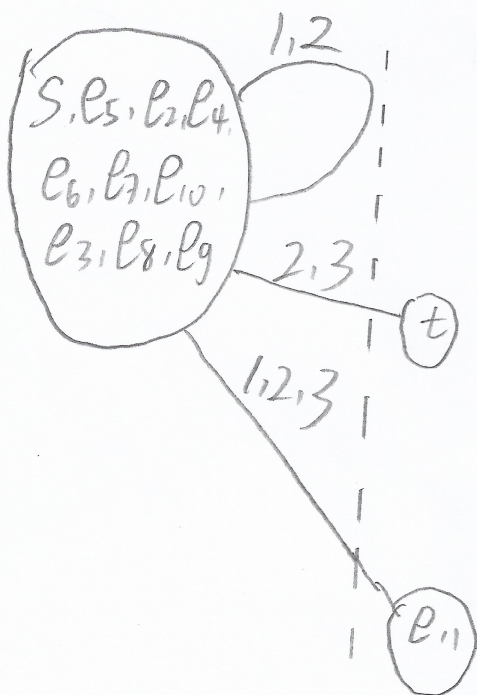 1,2
S, e5, e2, e4,
e6, e7, e10,
e3, e8, e9
2,3
t
1,2,3
e11